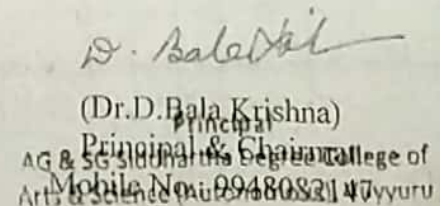 D. Bala
(Dr.D.Bala Krishna)
Principal
Principal & Chairman
AG & SG Siddhartha Degree College of
Mobile No: 9948082147
Arts & Science (Autonomous) Vuyyuru